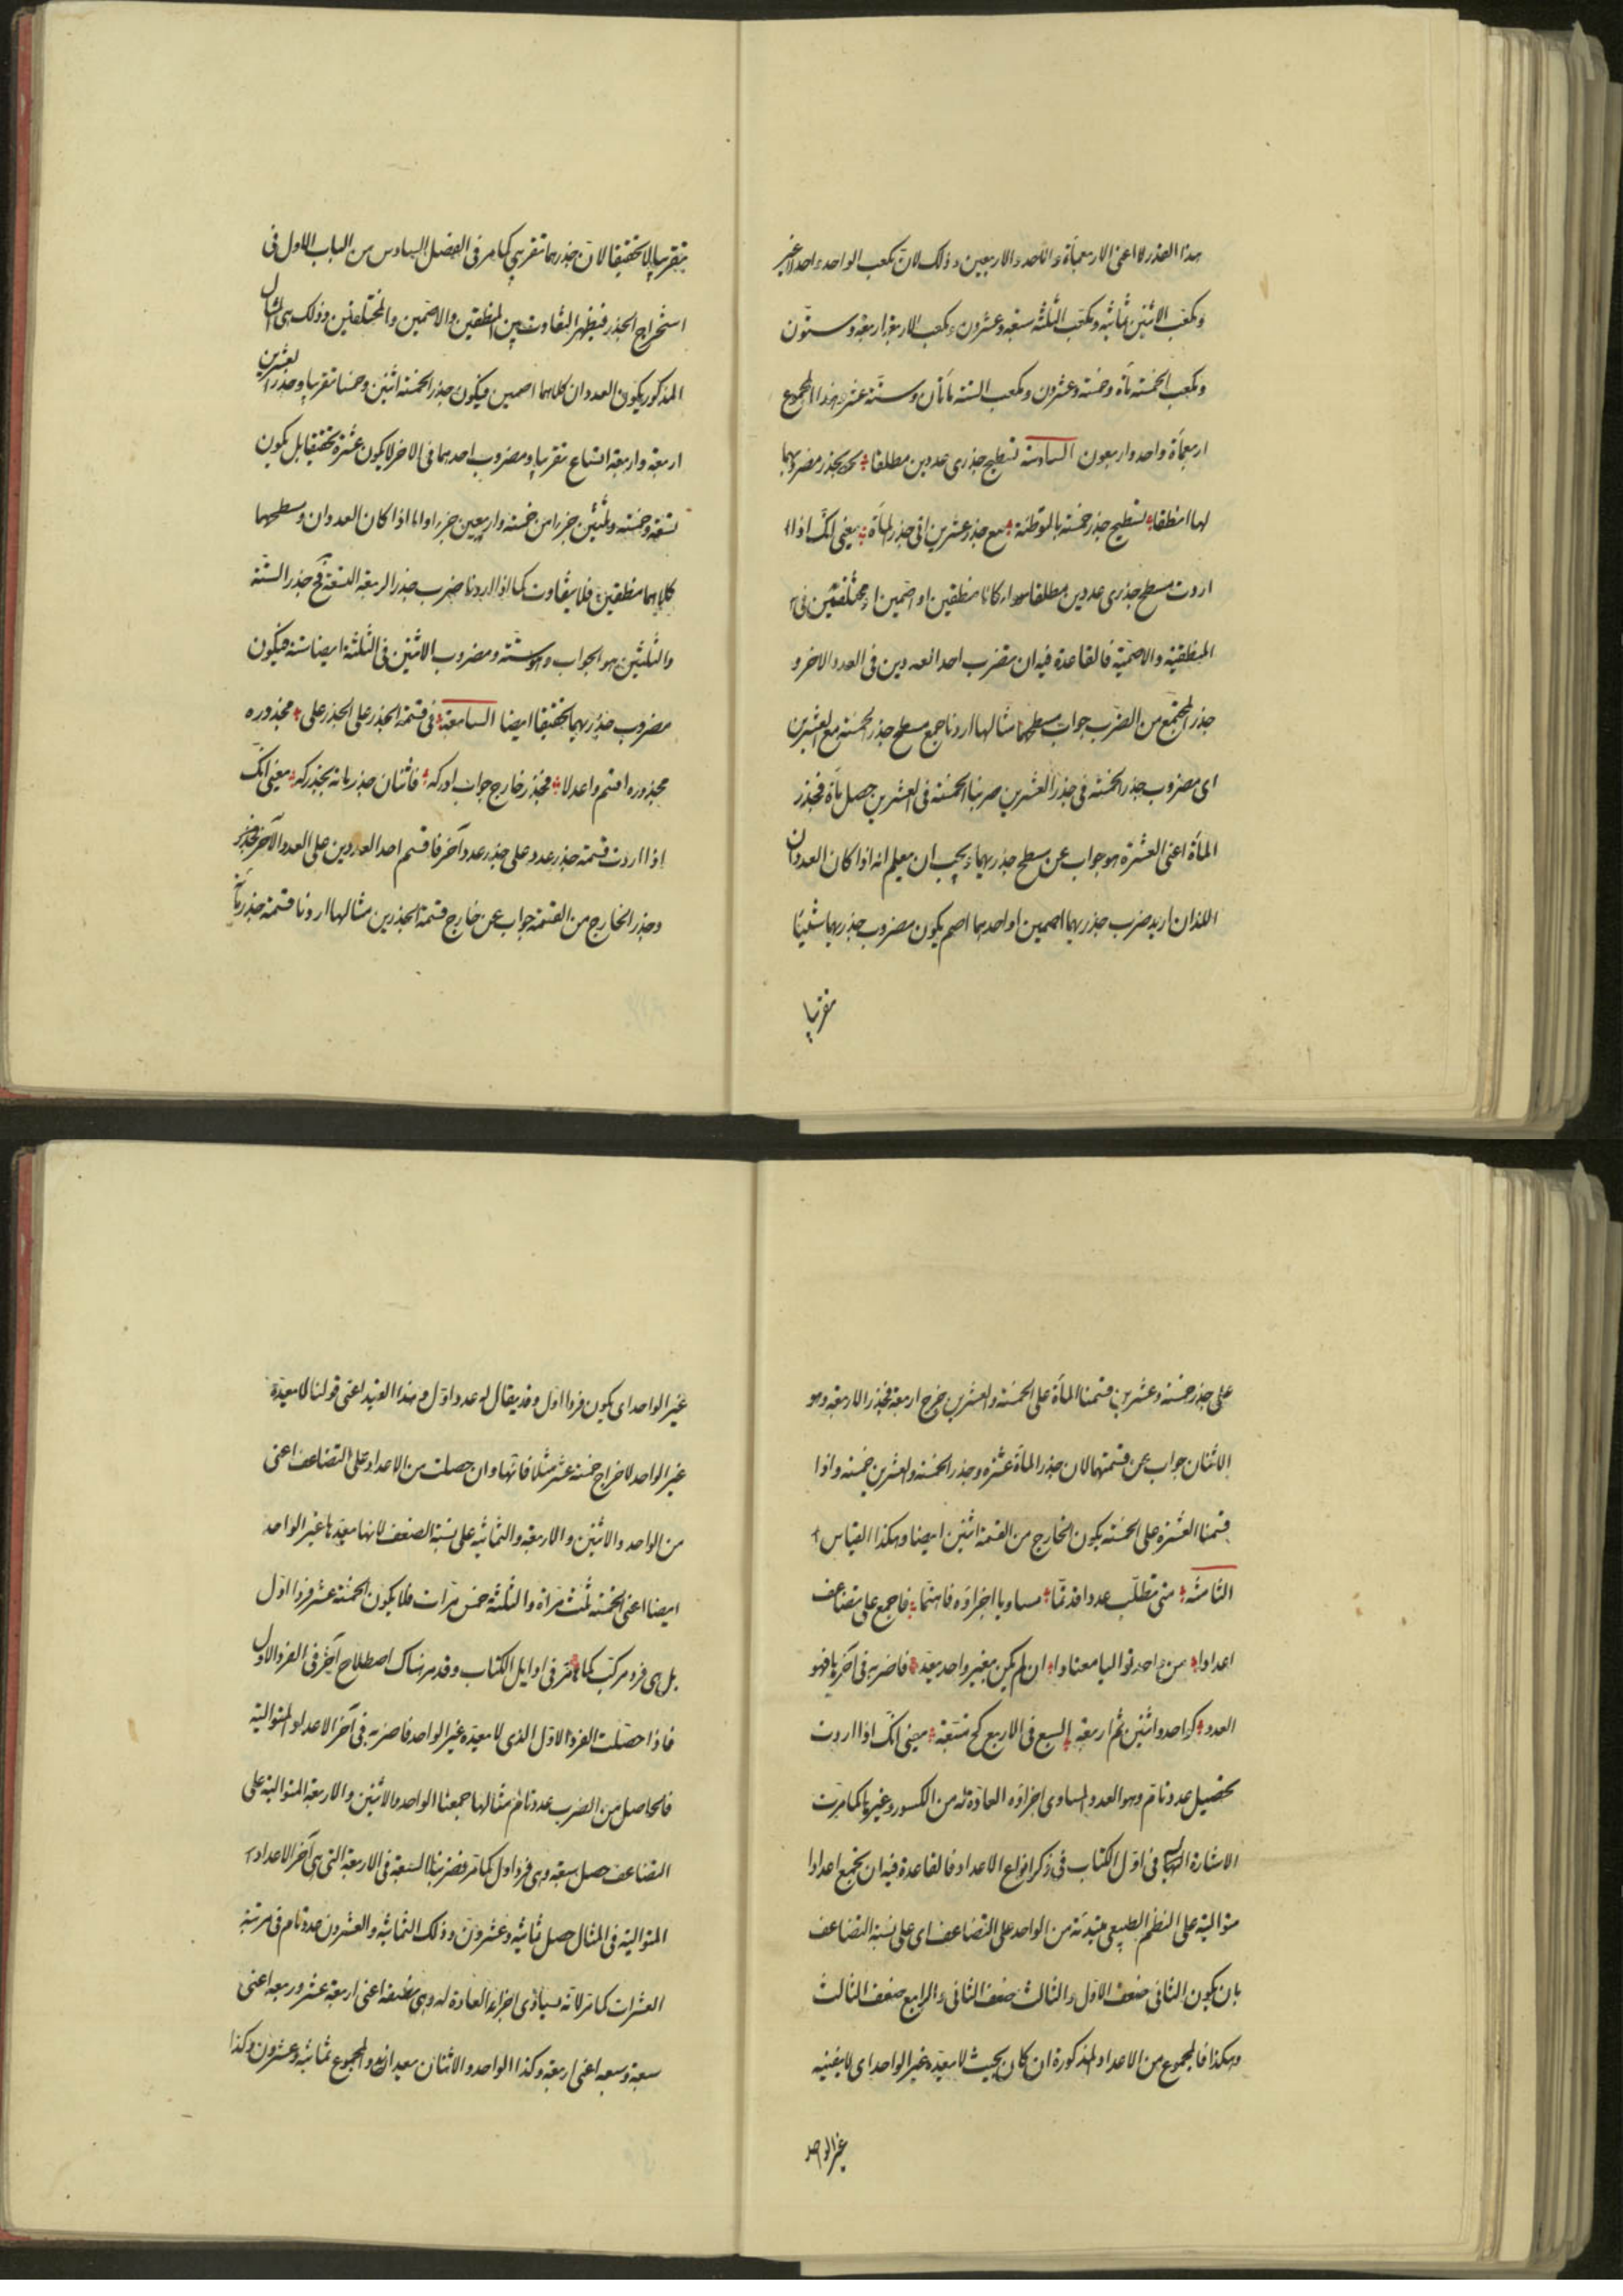 هذا القدر لا اعنى الاربعمأة والاحد والاربعين وذلك لان مكعب الواحد واحد لا غير
ومكعب الاثنين ثمانية ومكعب الثلثة سبعة وعشرون ومكعب الاربعة اربعة وستون
ومكعب الخمسة مأة وخمسة وعشرون ومكعب الستة مأتان وستة عشر وهذا المجموع
اربعمأة واحد واربعون السادسة تسطيح جذرى عددين مطلقا نحو بجذر مضروبهما
لها منطقا تسطيح جذر خمسة بالتوطئة مع جذر عشرين اتى جذر المأة يعنى انك اذا
اردت مسطح جذرى عددين مطلقا سواء كانا منطقين او اصمين او مختلفين فى
المنطقية والاصمية فالقاعدة فيه ان تضرب احد العددين فى العدد الاخر و
جذر المجتمع من الضرب جواب مسطحهما مثالها اردنا جمع مسطح جذر الخمسة مع العشرين
اى مضروب جذر الخمسة فى جذر العشرين ضربنا الخمسة فى العشرين حصل مأة فجذر
المأة اعنى العشرة هو جواب عن مسطح جذريهما ويجب ان يعلم انه اذا كان العددان
اللذان اريد ضرب جذريهما اصمين او احدهما اصم يكون مضروب جذريهما شيئا
تقريبا
تقريبا لا تحقيقا لان جذرهما تقريبى كما مر فى الفصل السادس من الباب الاول فى
استخراج الجذر فيظهر التفاوت بين المنطقين والاصمين والمختلفين وذلك فى المثال
المذكور يكون العددان كلاهما اصمين فيكون جذر الخمسة اثنين وخمسا تقريبا وجذر العشرين
اربعة واربعة اتساع تقريبا ومضروب احدهما فى الاخر لا يكون عشرة تحقيقا بل يكون
تسعة وخمسة وثلثين جزءا من خمسة واربعين جزءا واما اذا كان العددان ومسطحهما
كلاهما منطقين فلا يتفاوت كما اذا اردنا ضرب جذر الاربعة التسعة فح جذر الستة
والثلثين هو الجواب وهو ستة ومضروب الاثنين فى الثلثة ايضا ستة فيكون
مضروب جذريهما تحقيقا ايضا السابعة فى قسمة الجذر على الجذر على مجذوره
مجذوره اقسم واعدلا فجذر خارج جواب ادركه فاثنان جذر مأة بجذر كه يعنى انك
اذا اردت قسمة جذر عدد على جذر عدد آخر فاقسم احد العددين على العدد الآخر
وجذر الخارج من القسمة جواب عن خارج قسمة الجذرين مثالها اردنا قسمة جذر مأة
على جذر خمسة وعشرين قسمنا المأة على الخمسة والعشرين خرج اربعة فجذر الاربعة وهو
الاثنان جواب عن قسمتهما لان جذر المأة عشرة وجذر الخمسة والعشرين خمسة واذا
قسمنا العشرة على الخمسة يكون الخارج من القسمة اثنين ايضا وهكذا القياس
الثامنة متى تطلب عددا قد تما مساويا اجزاؤه فاهتما فاجمع على تضاعف
اعدادا من واحد تواليا معتادا ان لم يكن بغير واحد يعد فاضربه فى آخرها فهو
العدد كواحد واثنين ثم اربعة السبع فى الاربع كح متبعة يعنى انك اذا اردت
تحصيل عدد تام وهو العدد المساوى اجزاؤه العادة له من الكسور وغيرها كما مرت
الاشارة اليها فى اول الكتاب فى ذكر انواع الاعداد فالقاعدة فيه ان تجمع اعدادا
متوالية على النظم الطبيعى مبتدئة من الواحد على التضاعف اى على نسبة التضاعف
بان يكون الثانى ضعف الاول والثالث ضعف الثانى والرابع ضعف الثالث
وهكذا فالمجموع من الاعداد المذكورة ان كان بحيث لا يعده غير الواحد اى لا يفنيه
غير الواحد
غير الواحد اى يكون فردا اول وقد يقال له عدد اول وبهذا القيد اعنى قولنا لا يعده
غير الواحد لاخراج خمسة عشر مثلا فانها وان حصلت من الاعداد على التضاعف اعنى
من الواحد والاثنين والاربعة والثمانية على نسبة الضعف لانها يعدها غير الواحد
ايضا اعنى الخمسة ثلث مراة والثلثة خمس مرات فلا يكون الخمسة عشر فردا اول
بل هى فرد مركب كما مر فى اوايل الكتاب وقد مر هناك اصطلاح آخر فى الفرد الاول
فاذا حصلت الفرد الاول الذى لا يعده غير الواحد فاضربه فى آخر الاعداد المتوالية
فالحاصل من الضرب عدد تام مثالها جمعنا الواحد والاثنين والاربعة المتوالية على
التضاعف حصل سبعة وهى فرد اول كما مر فضربنا السبعة فى الاربعة التى هى آخر الاعداد
المتوالية فى المثال حصل ثمانية وعشرون وذلك الثمانية والعشرون عدد تام فى مرتبة
العشرات كما مر لانه يساوى اجزاء العادة له وهى نصفه اعنى اربعة عشر وربعه اعنى
سبعة وسبعه اعنى اربعة وكذا الواحد والاثنان يعدانه والمجموع ثمانية وعشرون وكذا